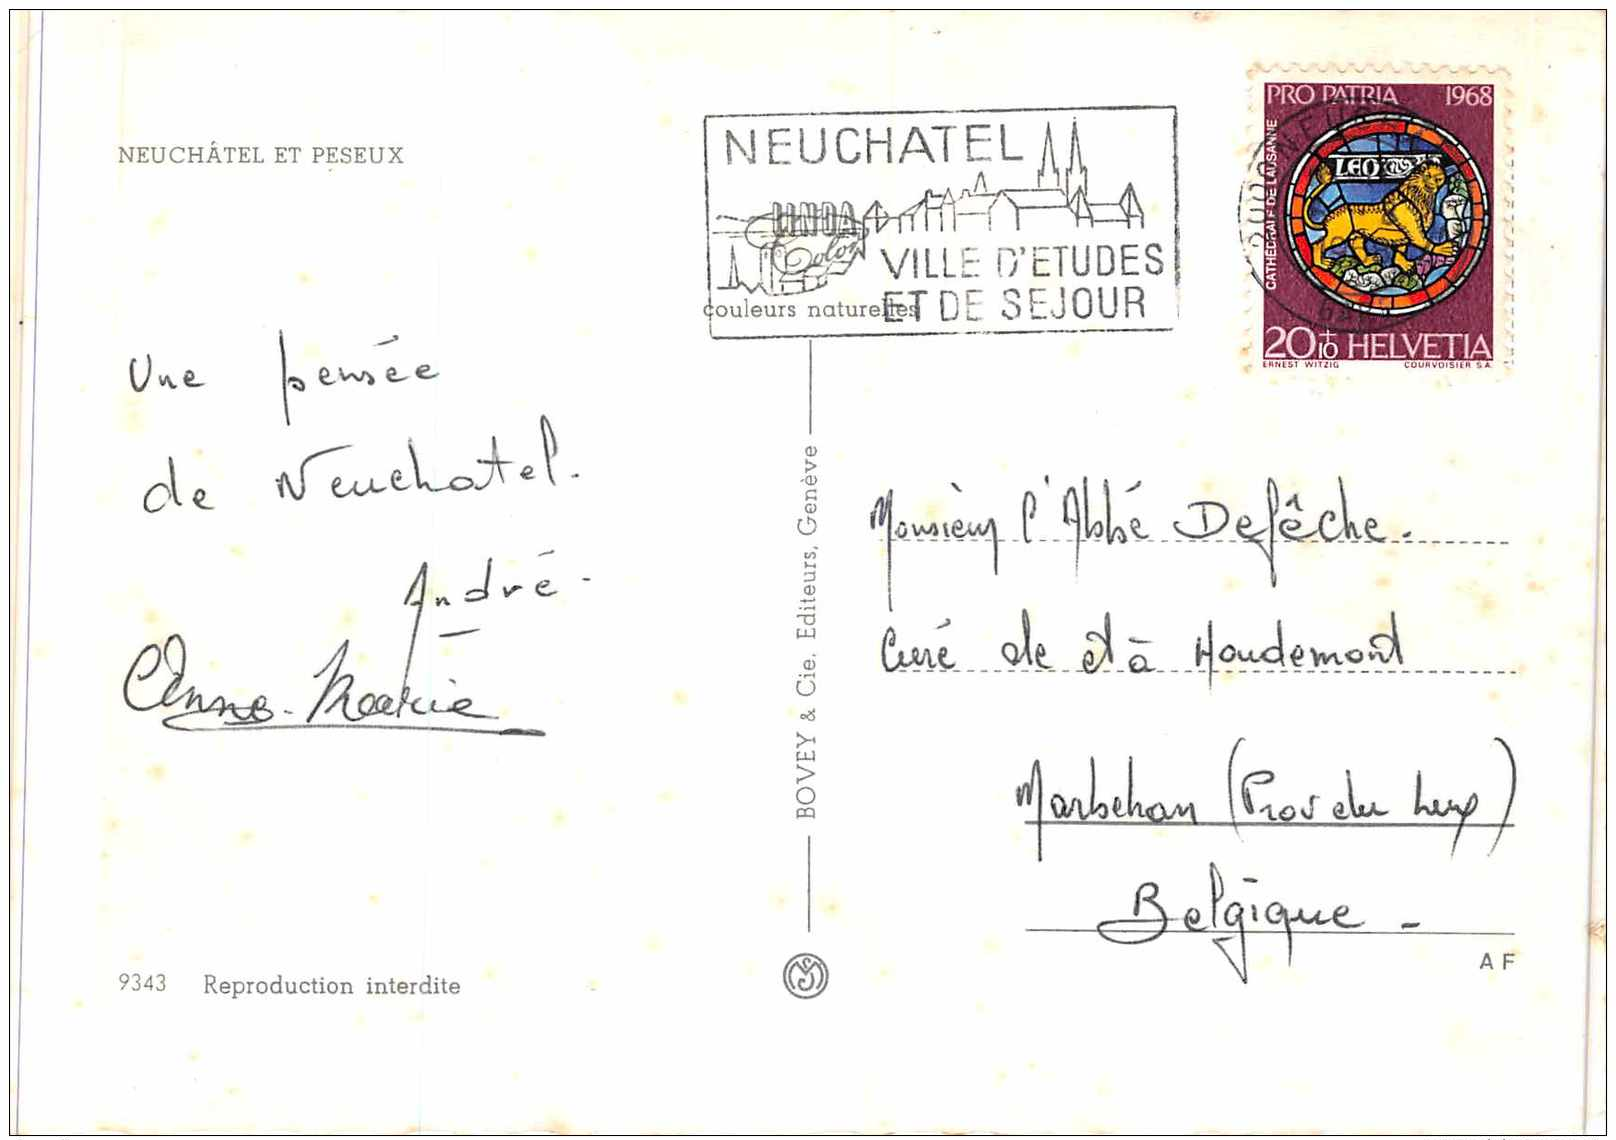 NEUCHÂTEL ET PESEUX
NEUCHATEL
VILLE D'ETUDES
ET DE SEJOUR
LINDA
Color
couleurs naturelles
PRO PATRIA 1968
CATHÉDRALE DE LAUSANNE
LEO
20+10 HELVETIA
ERNEST WITZIG COURVOISIER S.A.
Une pensée
de Neuchatel.
André.
Anne-Marie
BOVEY & Cie, Editeurs, Genève
Monsieur l'Abbé Defêche.
Curé de et à Houdemont
Marbehan (Prov du Lux)
Belgique -
9343 Reproduction interdite
A F